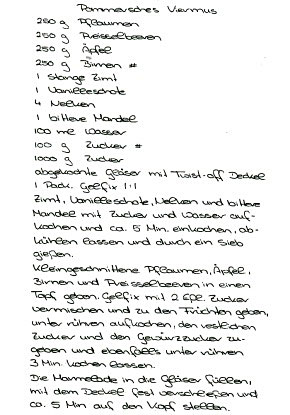 Pommersches Viermus
250 g Pflaumen
250 g Preisselbeeren
250 g Äpfel
250 g Birnen #
1 Stange Zimt
1 Vanilleschote
4 Nelken
1 bittere Mandel
100 ml Wasser
100 g Zucker #
1000 g Zucker
abgekochte Gläser mit Twist-off Deckel
1 Pack. Gelfix 1:1
Zimt, Vanilleschote, Nelken und bittere
Mandel mit Zucker und Wasser auf-
kochen und ca. 5 Min. einkochen, ab-
kühlen lassen und durch ein Sieb
gießen.
Kleingeschnittene Pflaumen, Äpfel,
Birnen und Preisselbeeren in einen
Topf geben. Gelfix mit 2 Eßl. Zucker
vermischen und zu den Früchten geben,
unter rühren aufkochen, den restlichen
Zucker und den Gewürzzucker zu-
geben und ebenfalls unter rühren
3 Min. kochen lassen.
Die Marmelade in die Gläser füllen,
mit dem Deckel fest verschließen und
ca. 5 Min auf den Kopf stellen.